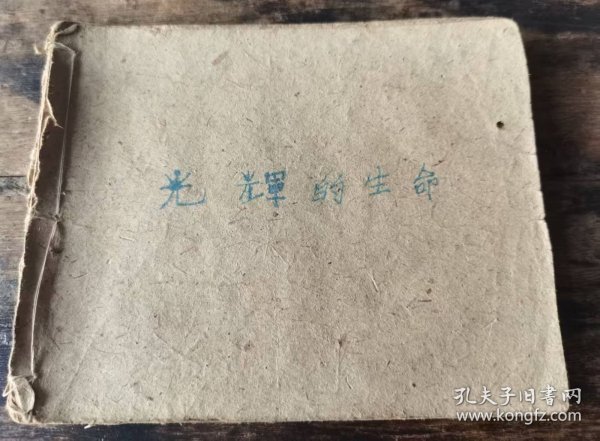 光輝的生命
孔夫子旧書网
www.kongfz.com